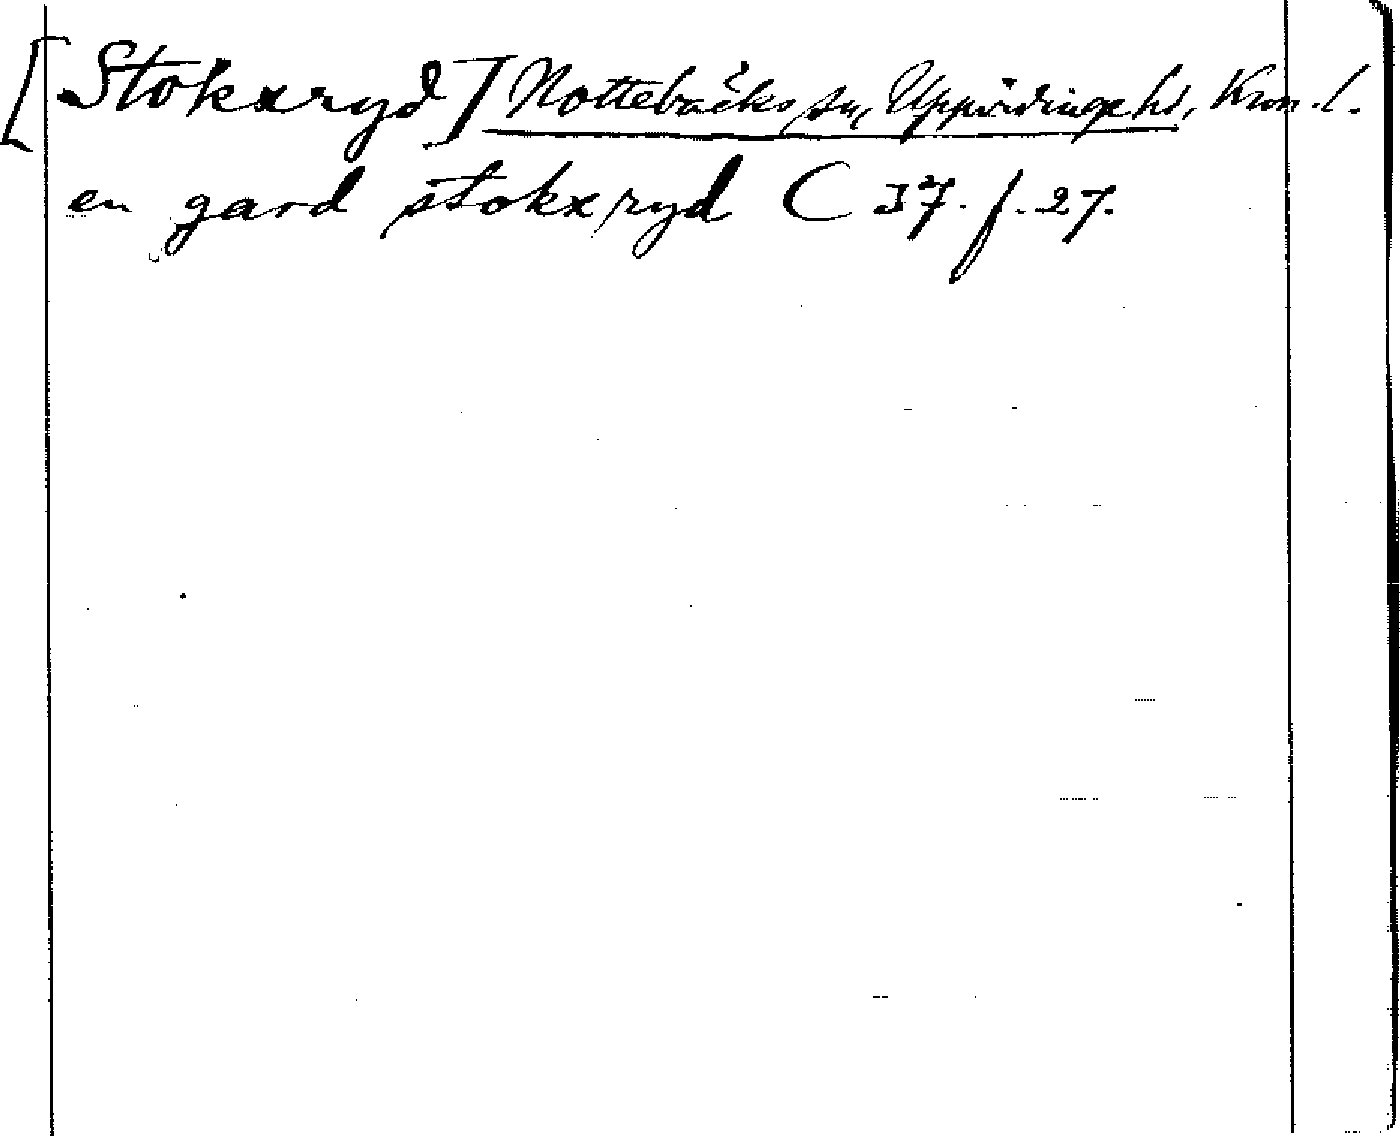 [Stokxryd] Nottebäcks sn, Uppvidinge hd, Kron.l.
en gard stokx ryd C 37. f. 27.